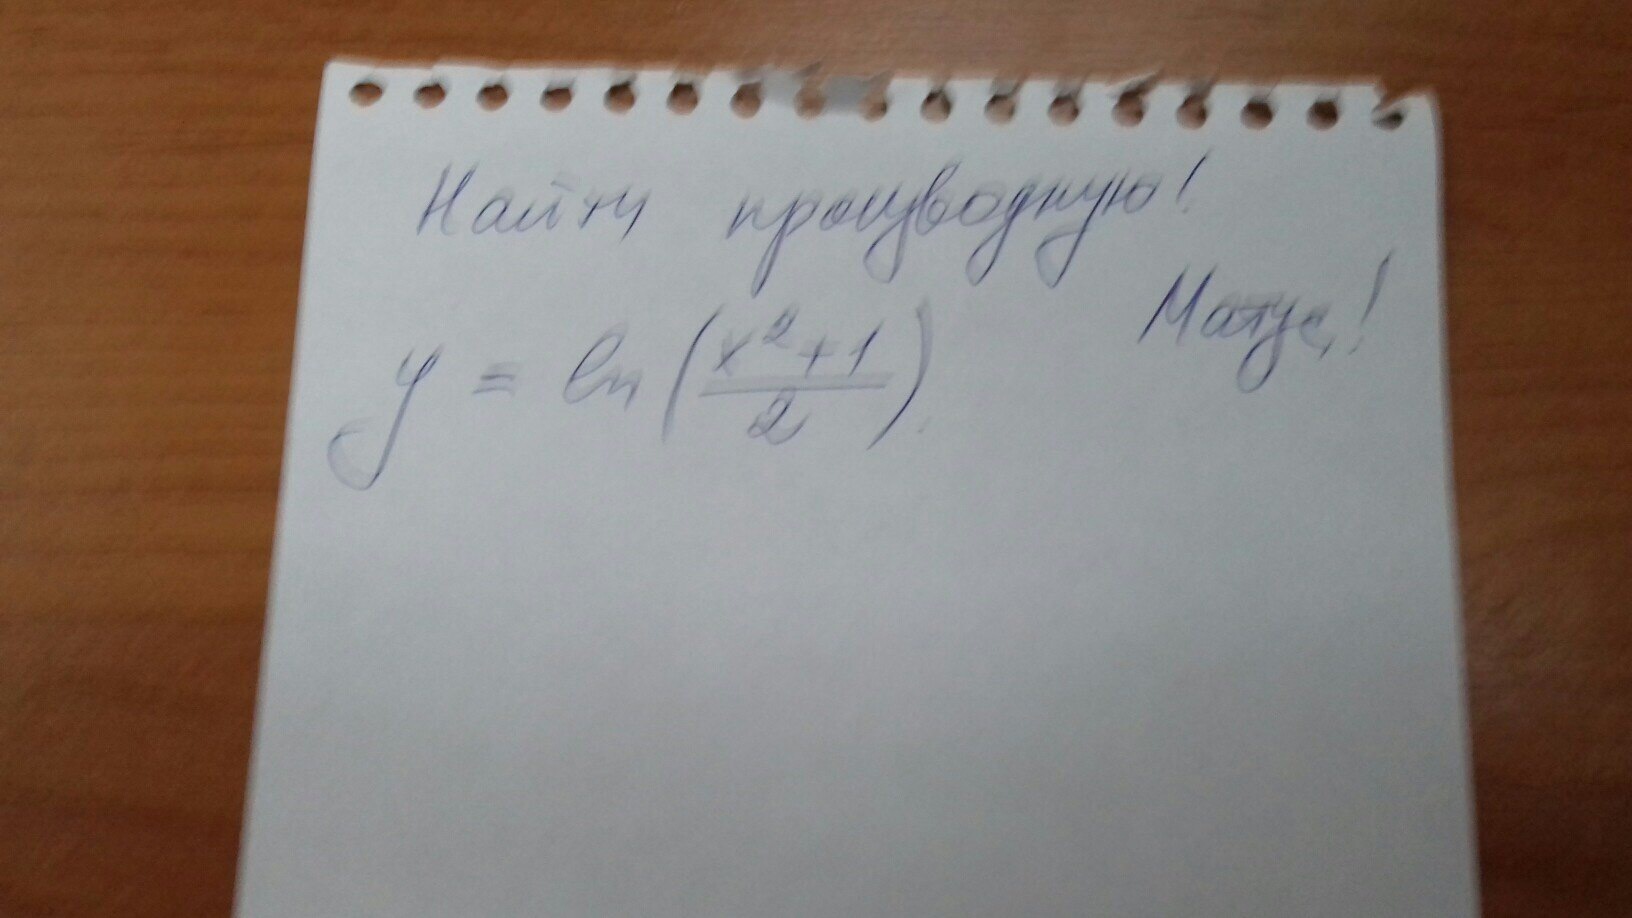 Найти производную!
Матус!
y = ln(\frac{x^2+1}{2})